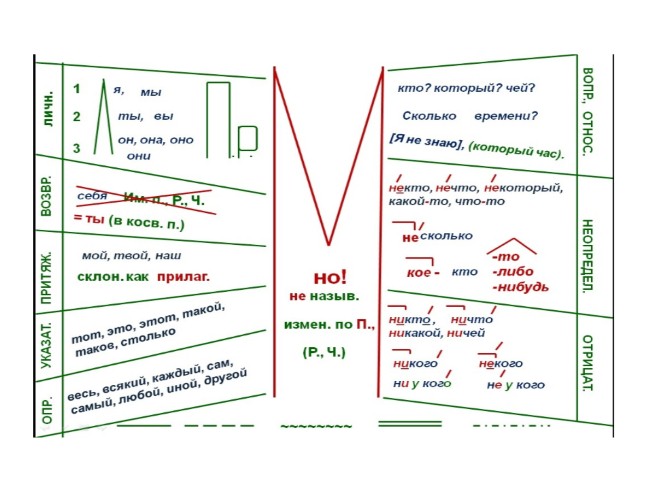 ЛИЧН.
1 я, мы
2 ты, вы
3 он, она, оно
они
Л П Пр
ВОЗВР.
себя Им. п., Р., Ч.
= ты (в косв. п.)
ПРИТЯЖ.
мой, твой, наш
склон. как прилаг.
УКАЗАТ.
тот, это, этот, такой,
таков, столько
ОПР.
весь, всякий, каждый, сам,
самый, любой, иной, другой
М
но!
не назыв.
измен. по П.,
(Р., Ч.)
ВОПР., ОТНОС.
кто? который? чей?
Сколько времени?
[Я не знаю], (который час).
НЕОПРЕДЕЛ.
некто, нечто, некоторый,
какой-то, что-то
несколько
кое - кто -то
-либо
-нибудь
ОТРИЦАТ.
никто, ничто
никакой, ничей
никого некого
ни у кого не у кого